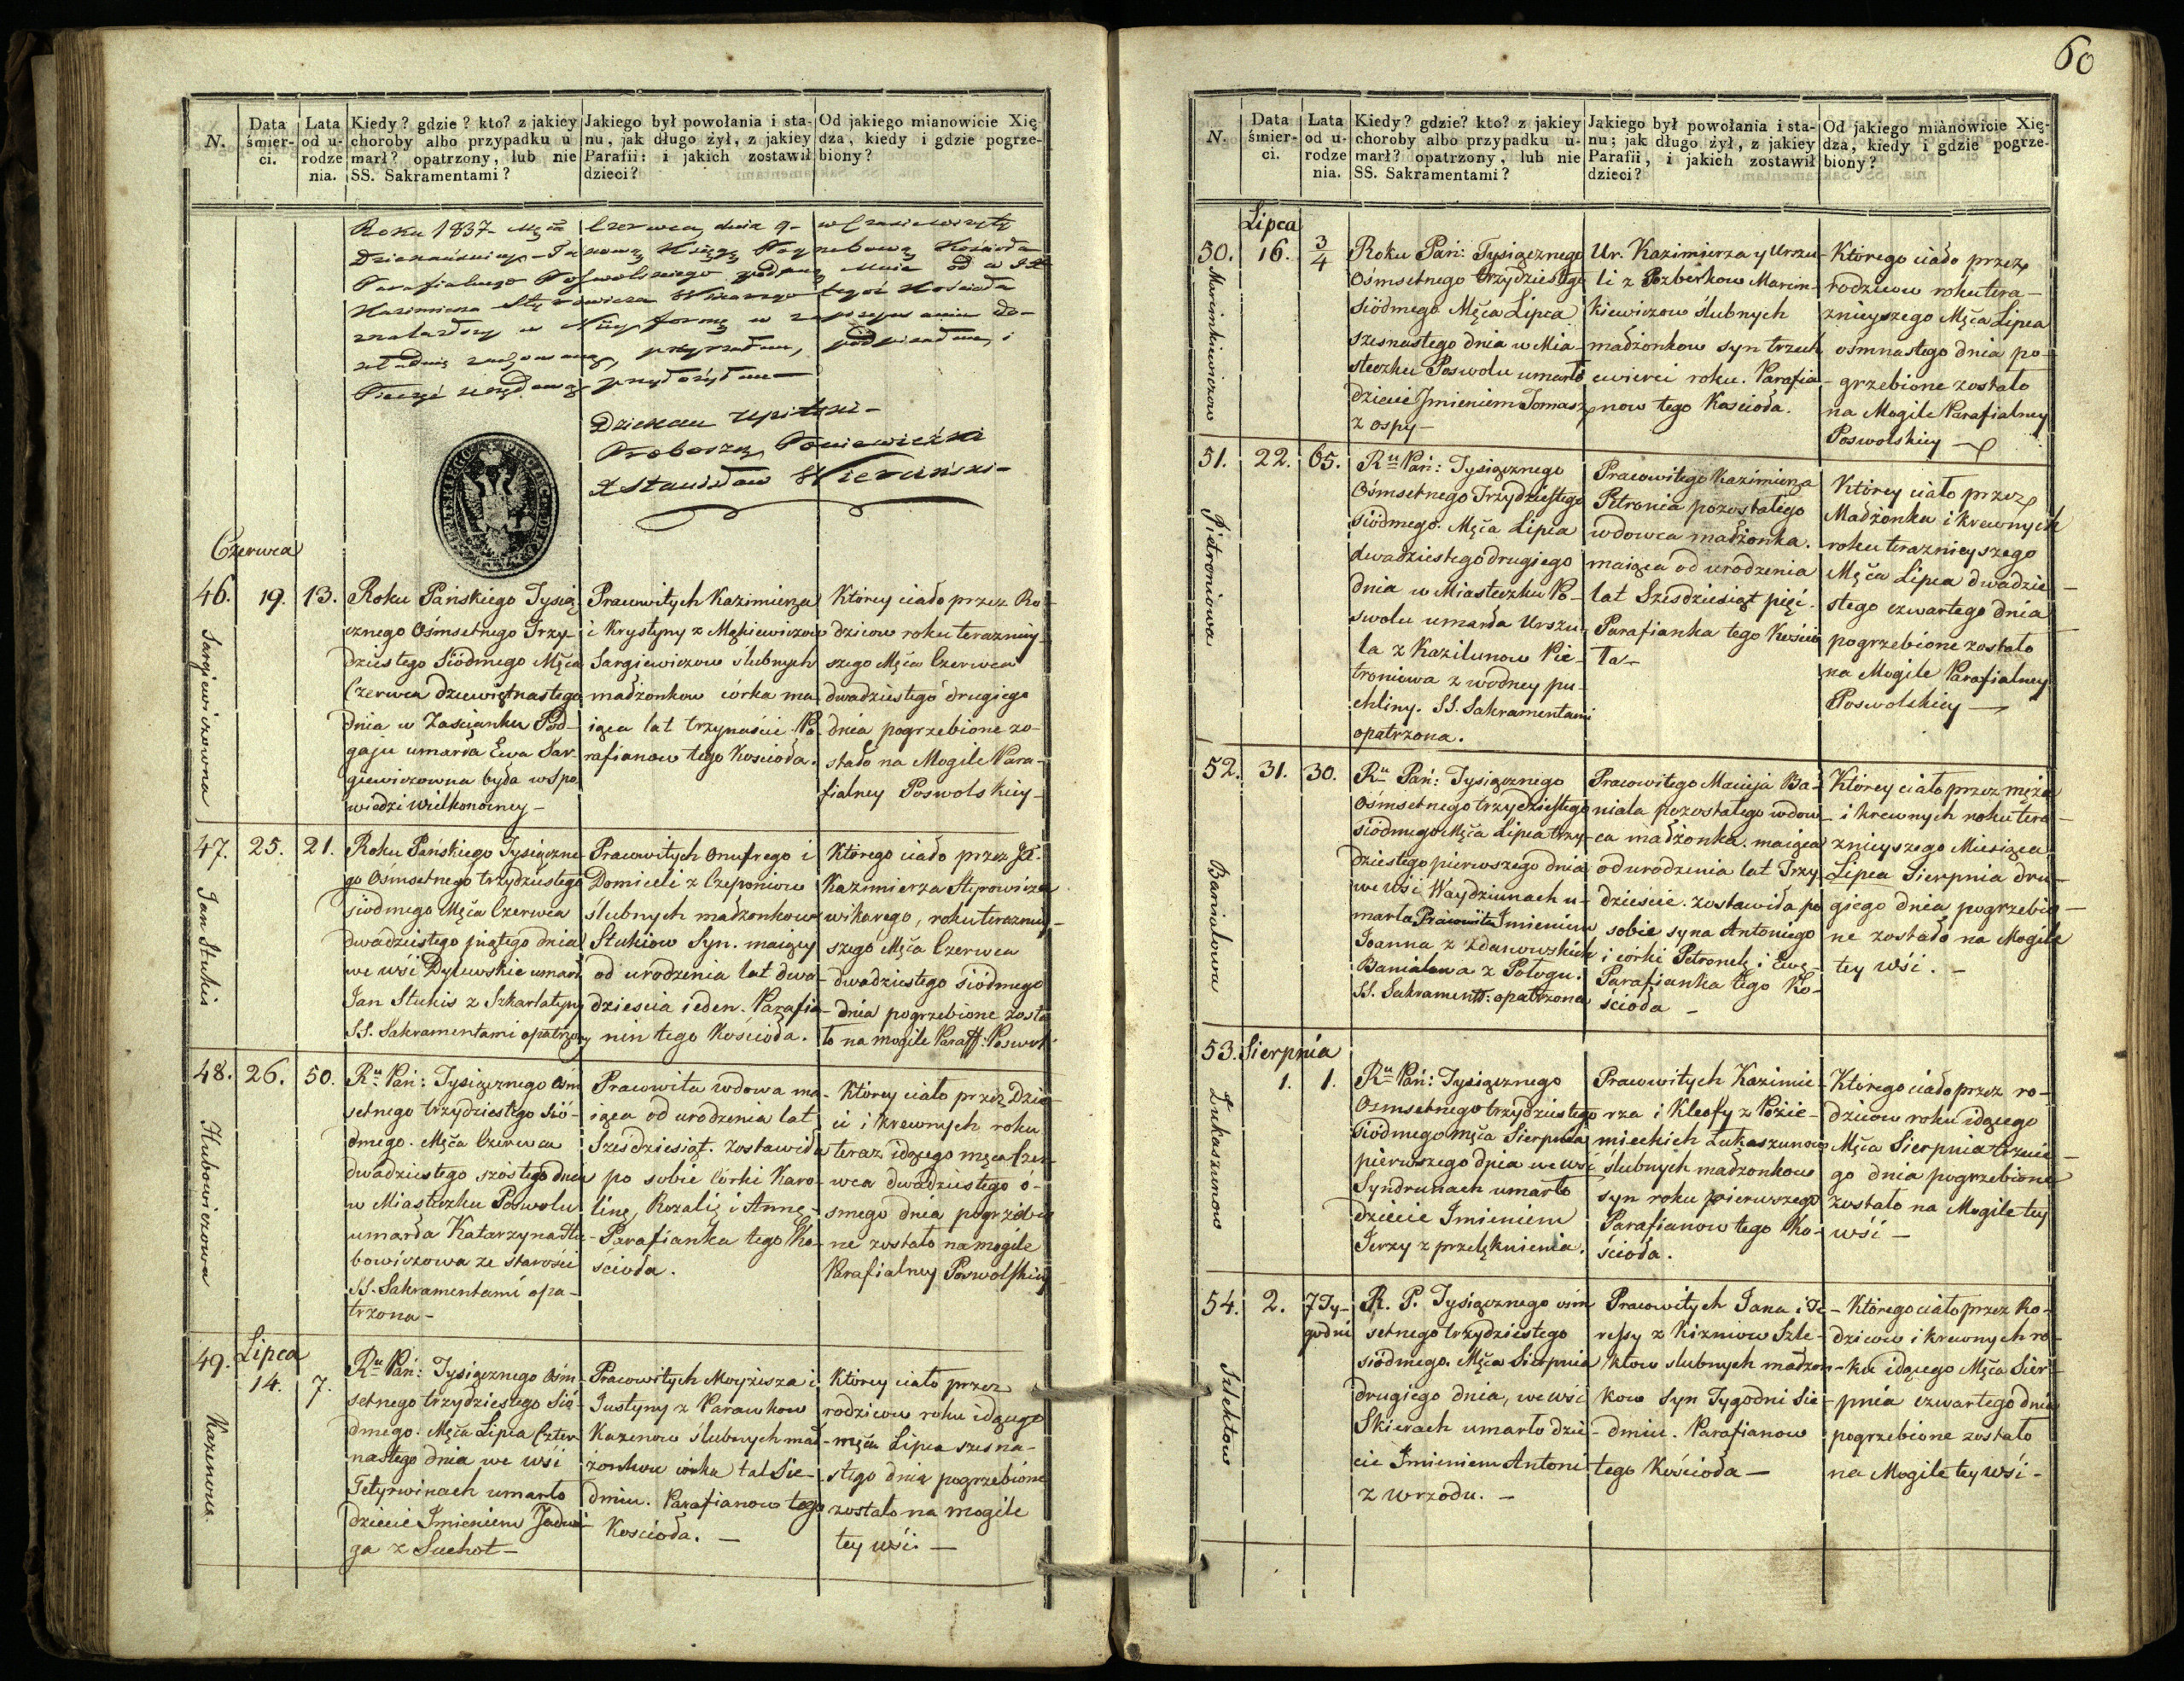 60
N.
Data śmierci.
Lata od urodzenia.
Kiedy? gdzie? kto? z jakiey
choroby albo przypadku u
marł? opatrzony, lub nie
SS. Sakramentami?
Jakiego był powołania i sta-
nu, jak długo żył, z jakiey
Parafii: i jakich zostawił
dzieci?
Od jakiego mianowicie Xię
dza, kiedy i gdzie pogrze-
biony?
Roku 1837 Męca Czerwca dnia 9 w Czasie wizyty
Dziekańskiey Ta nową Księgę Pogrzebową Kościoła
Parafialnego Poswolskiego podaną Mnie od
Kazimierza Styrowicza Wikarego tegoż Kościoła
znalazłszy w
przyrzałem, podpisałem i
Pieczęć urzędową przyłożyłem
Dziekan Upitski
Proboszcz Poniewieżski
X Stanisław
Czerwca
46.
19.
13.
Sargiewiczowna
Roku Pańskiego Tysią
cznego Ośmsetnego Trzy-
dziestego Siódmego Męca
Czerwca dziewiętnastego
dnia w Zaścianku Pod-
gaju umarła Ewa Sar
giewiczowna była w Spo
wiedzi wielkonocney
Pracowitych Kazimierza
i Krystyny z Mąkiewiczow
Sargiewiczow ślubnych
małżonkow córka ma-
iąca lat trzynaście Pa
rafianow tego Kościoła.
Którey ciało przez Ro-
dzicow roku teraznieÿ-
szego Męca Czerwca
dwadziestego drugiego
dnia pogrzebione zo-
stało na Mogile Para-
fialney Poswolskiey
47.
25.
21.
Jan Stukis
Roku Pańskiego Tysiączne-
go Osmsetnego trzydziestego
siodmego Męca Czerwca
dwadziestego piątego dnia
we wśi Dylewskie umarł
Jan Stukis z Szkarlatyny
SS. Sakramentami opatrzony
Pracowitych Onufrego i
Domiceli z Czeponiow
ślubnych małżonkow
Stukiow Syn. maiący
od urodzenia lat dwa-
dziescia ieden. Parafia-
nin tego Kościoła.
Którego ciało przez JX.
Kazimierza Styrowicza
wikarego, roku teraznieÿ-
szego Męca Czerwca
dwadziestego siódmego
dnia pogrzebione zosta
ło na mogile Paraff: Poswol:
48.
26.
50.
Hubowiczowa
Ru Pań: Tysiącznego Ośm
setnego trzydziestego Sió-
dmego. Męca Czerwca
dwadziestego szostego dnia
w Miasteczku Poswolu
umarła Katarzyna Hu
bowiczowa ze starości
SS. Sakramentami opa-
trzona
Pracowita wdowa ma-
iąca od urodzenia lat
Szesdziesiąt. zostawiła
po sobie Córki Karo-
linę, Rozalię i Annę
Parafianka tego Ko-
ścioła.
Którey ciało przez Dzie-
ci i krewnych roku
teraz idącego męca Czer-
wca dwadziestego ó-
smego dnia pogrzebio
ne zostało na mogile
Parafialney Poswolskiey
Lipca
49.
14.
7.
Kazenowa.
Ru Pań: Tysiącznego Ośm
setnego trzydziestego Sió-
dmego. Męca Lipca Czter-
nastego dnia we wśi
Tetyrwinach umarło
dziecie Jmieniem Jadwi
ga z Suchot
Pracowitych Moyżesza i
Justyny z Parawkow
Kazenow ślubnych mał-
żonkow córka lat Sie-
dmiu. Parafianow tego
Kościoła.
Którey ciało przez
rodzicow roku idącego
męca Lipca szesna-
stego dnia pogrzebione
zostało na mogile
tey wśi
N.
Data śmierci.
Lata od urodzenia.
Kiedy? gdzie? kto? z jakiey
choroby albo przypadku u-
marł? opatrzony, lub nie
SS. Sakramentami?
Jakiego był powołania i sta-
nu; jak długo żył, z jakiey
Parafii, i jakich zostawił
dzieci?
Od jakiego mianowicie Xię-
dza, kiedy i gdzie pogrze-
biony?
Lipca
50.
16.
3/4
Marcinkiewiczow
Roku Pań: Tysiącznego
Ośmsetnego trzydziestego
Siódmego Męca Lipca
szesnastego dnia w Mia-
steczku Poswolu umarło
dziecie Jmieniem Tomasz
z ospy
Ur. Kazimierza y Urszu-
li z Pozberkow Marcin-
kiewiczow ślubnych
małżonkow syn trzech
cwierci roku. Parafia-
now tego Kościoła.
Którego ciało przez
rodzicow roku tera-
znieyszego Męca Lipca
ośmnastego dnia po-
grzebione zostało
na Mogile Parafialney
Poswolskiey
51.
22.
65.
Pietroniowa
Ru Pań: Tysiącznego
Ośmsetnego Trzydziestego
Siódmego. Męca Lipca
dwadziestego drugiego
dnia w Miasteczku Po-
swolu umarła Urszu-
la z Kazilunow Pie-
troniowa z wodney pu-
chliny. SS. Sakramentami
opatrzona.
Pracowitego Kazimierza
Petronia pozostałego
wdowca małżonka.
maiąca od urodzenia
lat Szesdziesiąt pięć.
Parafianka tego Kościo
ła
Którey ciało przez
Małżonka i krewnych
roku teraznieyszego
Męca Lipca dwadzie-
stego czwartego dnia
pogrzebione zostało
na Mogile Parafialney
Poswolskiey
52.
31.
30.
Baniałowa
Ru Pań: Tysiącznego
Ośmsetnego trzydziestego
siódmego Męca Lipca trzy-
dziestego pierwszego dnia
we wśi Waydziunach u-
marła Pracowita Jmieniem
Joanna z Zdanowskich
Baniałowa z Pologu.
SS. Sakrament: opatrzona
Pracowitego Macieja Ba-
niala pozostałego wdow-
ca małżonka. maiąca
od urodzenia lat Trzy-
dziescie. zostawiła po
sobie syna Antoniego
i córki Petronelę i Ewę
Parafianka tego Ko-
ścioła
Którey ciało przez męża
i krewnych roku tera-
znieyszego Miesiąca
Lipca Sierpnia dru-
giego dnia pogrzebio-
ne zostało na Mogile
tey wśi.
53.
Sierpnia
1.
1.
Łukaszunow
Ru Pań: Tysiącznego
Osmsetnego trzydziestego
siódmego męca Sierpnia
pierwszego dnia we wśi
Syndrunach umarło
dziecie Jmieniem
Jerzy z przelęknienia.
Pracowitych Kazimie-
rza i Kleofy z Pożie-
mieckich Łukaszunow
ślubnych małżonkow
syn roku pierwszego
Parafianow tego Ko-
ścioła.
Którego ciało przez ro-
dzicow roku idącego
Męca Sierpnia trzecie-
go dnia pogrzebione
zostało na Mogile tey
wśi
54.
2.
7 Ty-
godni
Szlektow
R. P. Tysiącznego ośm
setnego trzydziestego
siódmego. Męca Sierpnia
drugiego dnia, we wśi
Skierach umarło dzie-
cie Jmieniem Antoni
z wrzodu.
Pracowitych Jana i Te-
ressy z Kizniow Szle-
ktow slubnych małżon-
kow Syn Tygodni Sie-
dmiu. Parafianow
tego Kościoła
Którego ciało przez Ro-
dzicow i krewnych ro-
ku idącego Męca Sier-
pnia czwartego dnia
pogrzebione zostało
na Mogile tey wśi